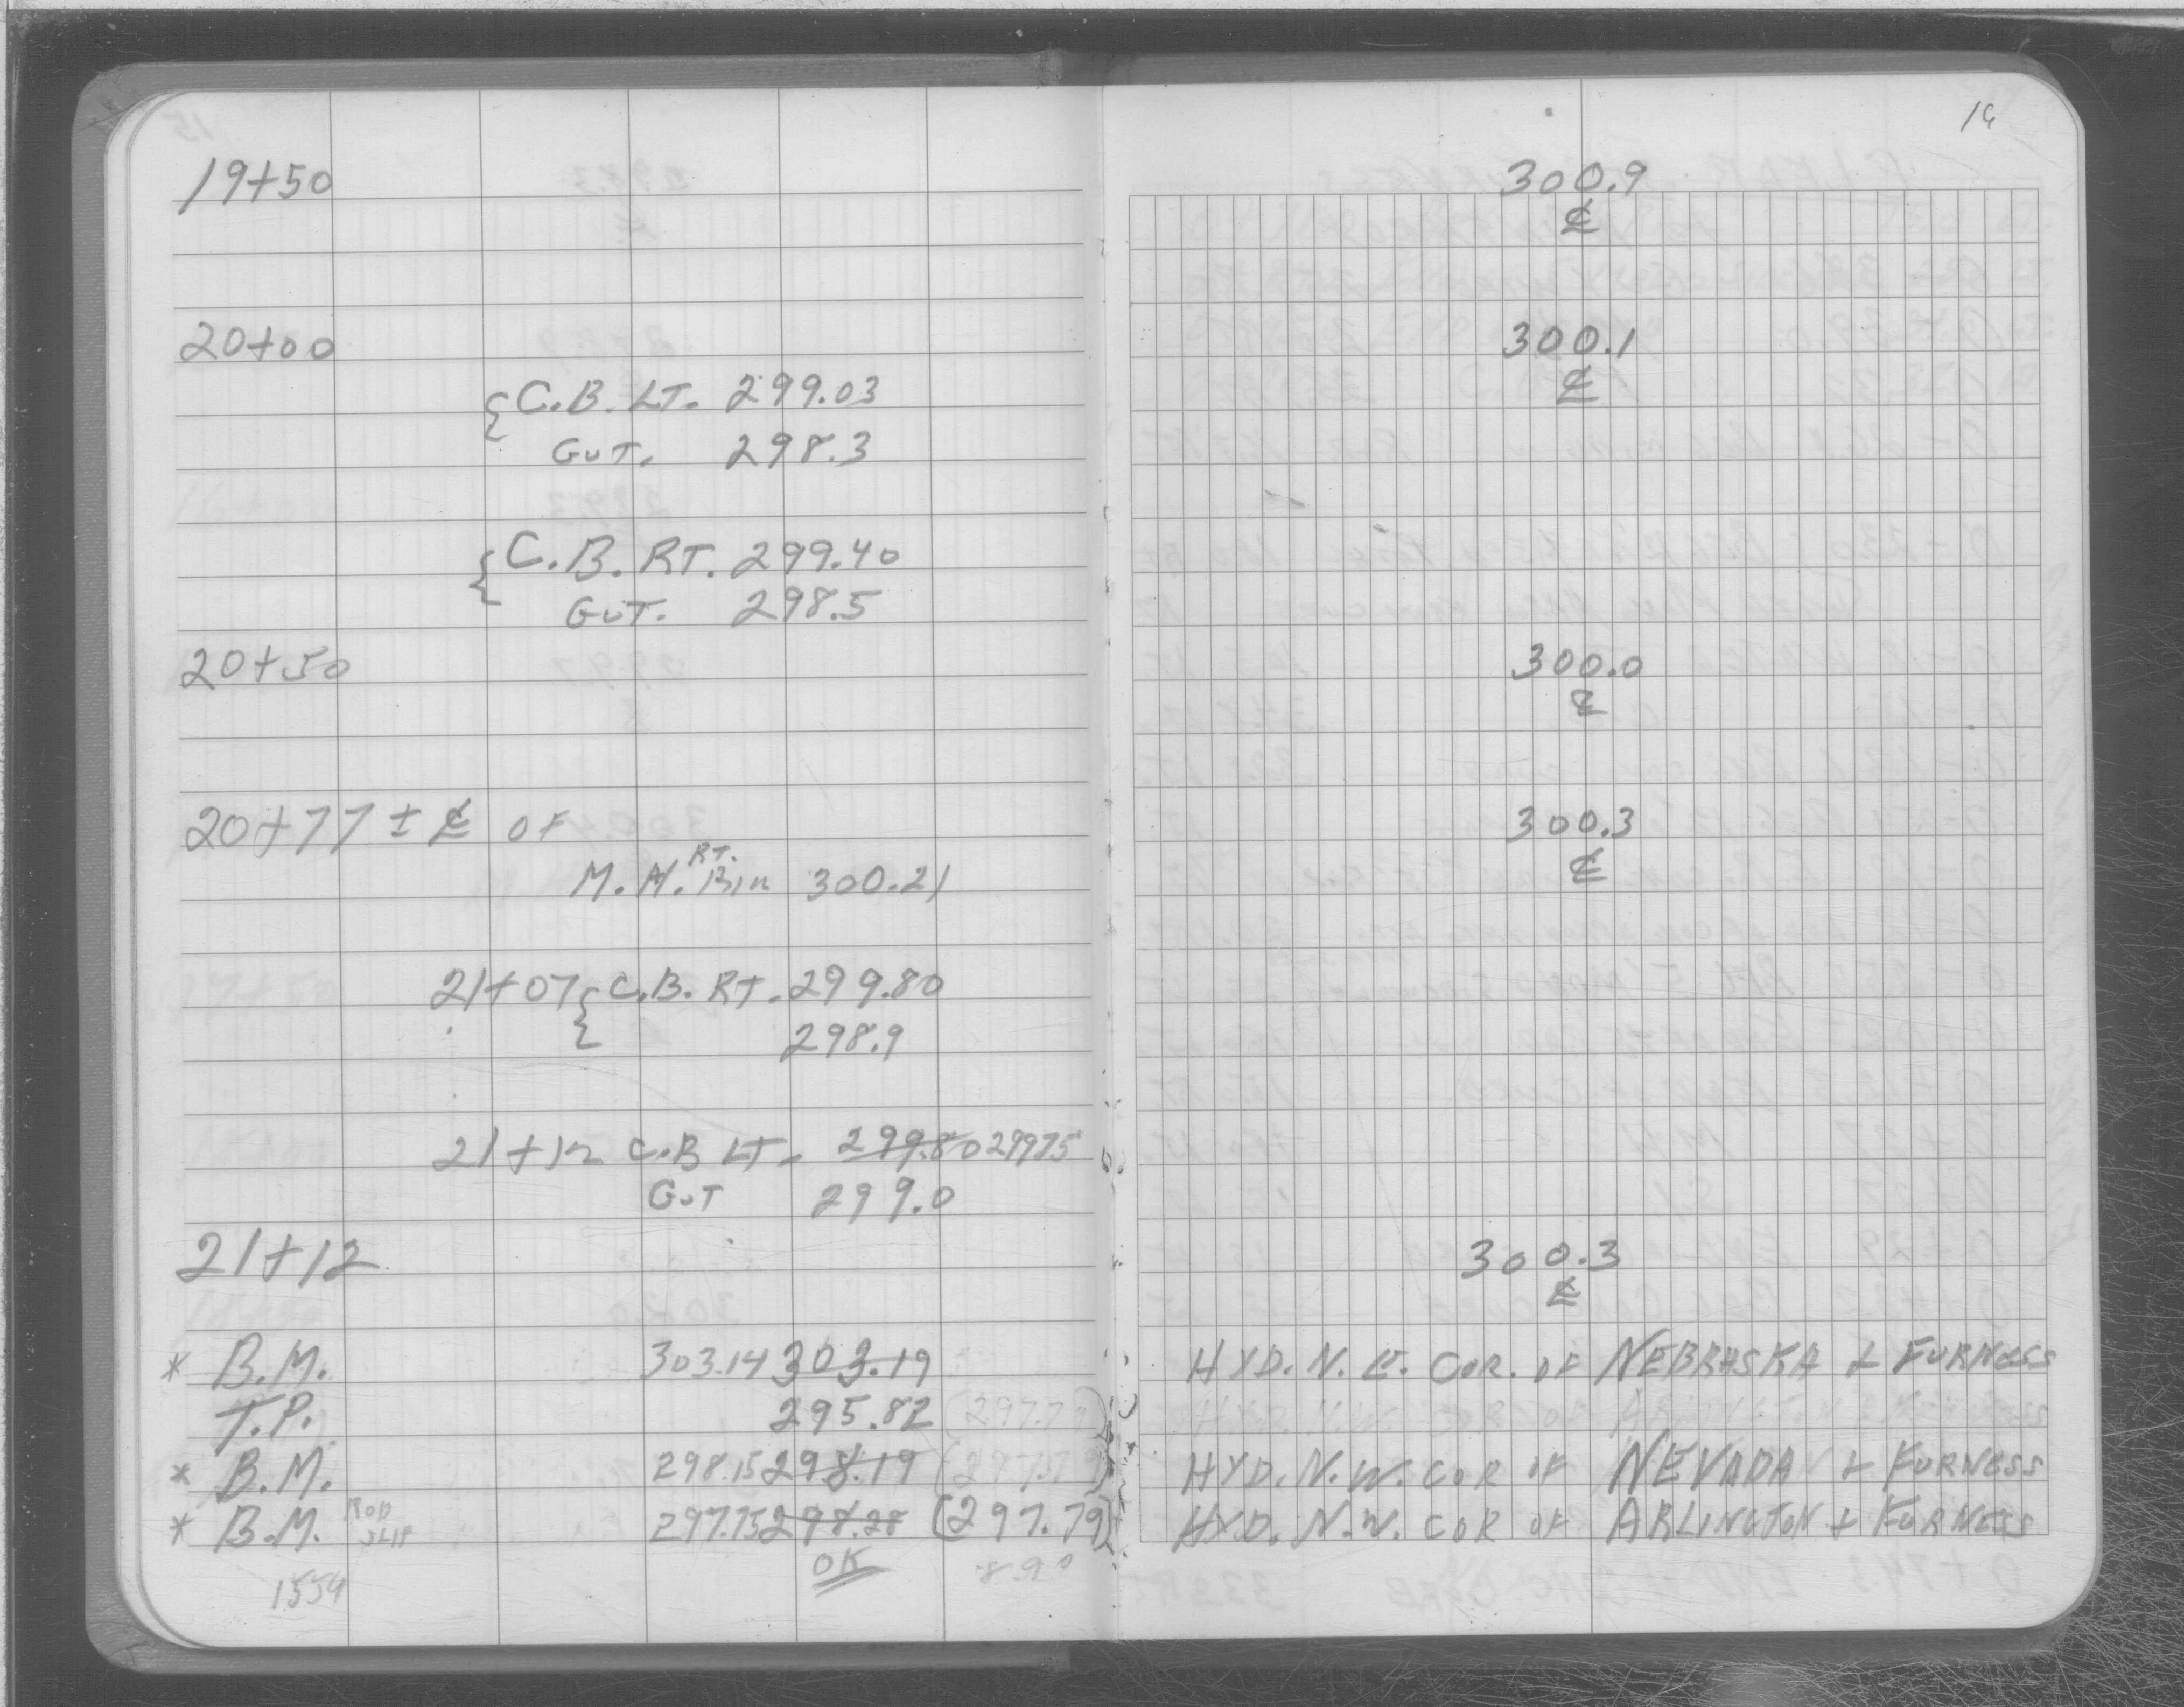 19+50 300.9
℄
20+00 300.1
℄
{ C.B. LT. 299.03
GUT. 298.3
{ C.B. RT. 299.40
GUT. 298.5
20+50 300.0
℄
20+77 ± ℄ OF 300.3
℄
RT.
M.H. Rim 300.21
21+07 { C.B. RT. 299.80
298.9
21+12 C.B LT. 299.80 299.75
GUT 299.0
21+12 300.3
℄
* B.M. 303.14 303.19 HYD. N.E. COR. OF NEBRASKA + FURNESS
T.P. 295.82
* B.M. 298.15 298.19 HYD. N.W. COR OF NEVADA + FURNESS
* B.M. ROD SLIP 297.75 298.28 (297.79) HYD. N.W. COR OF ARLINGTON + FURNESS
OK 8.90
1554